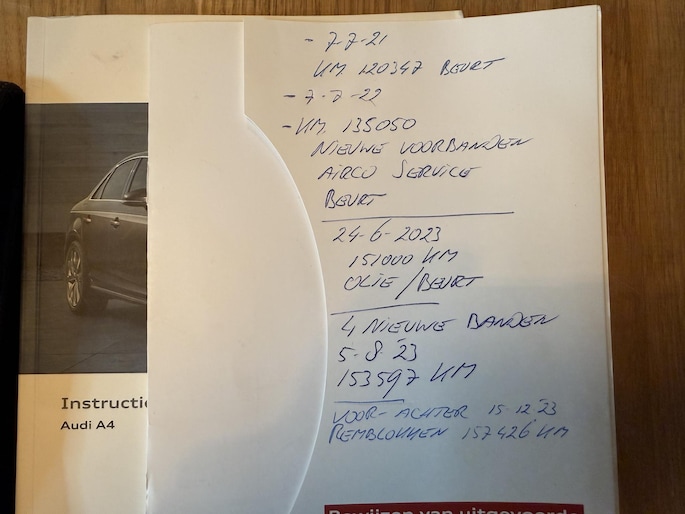 - 7-7-21
KM. 120347 BEURT
- 7-7-22
- KM. 135050
NIEUWE VOORBANDEN
AIRCO SERVICE
BEURT
24-6-2023
151000 KM
OLIE/BEURT
4 NIEUWE BANDEN
5-8-'23
153597 KM
VOOR-ACHTER 15-12'23
REMBLOKKEN 157426 KM
Instructie
Audi A4
Bewijzen van uitgevoerde